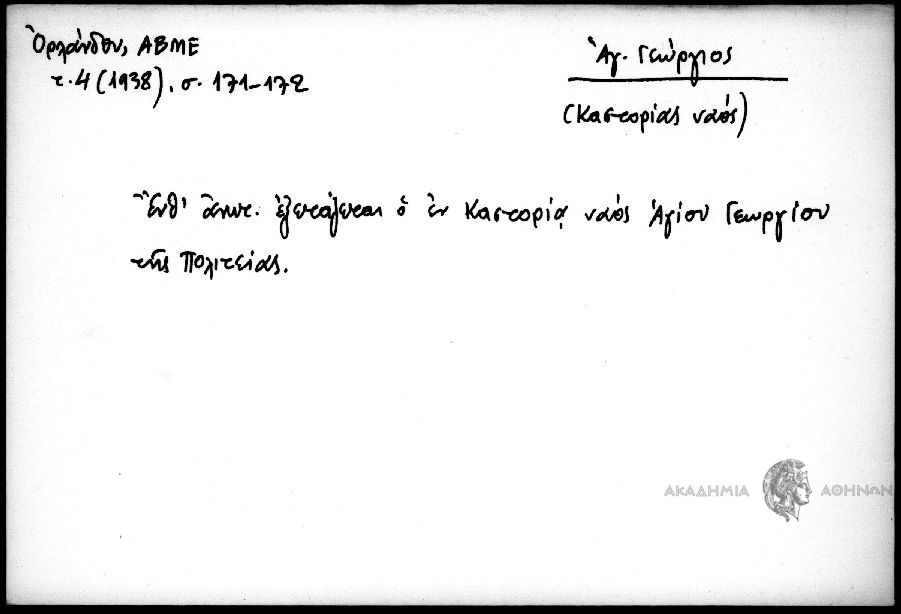 Ὀρλάνδου, ΑΒΜΕ
τ. 4 (1938), σ. 171-172
Ἁγ. Γεώργιος
(Καστορίας ναός)
Ἔνθ' ἀνωτ. ἐξετάζεται ὁ ἐν Καστορίᾳ ναός Ἁγίου Γεωργίου
τῆς Πολιτείας.
ΑΚΑΔΗΜΙΑ ΑΘΗΝΩΝ